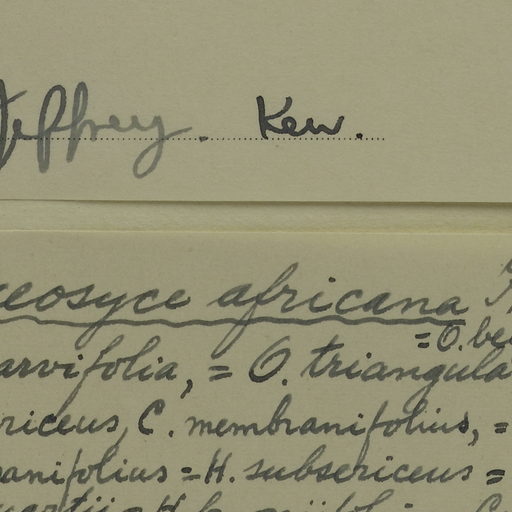 Jeffrey. Kew.
eosyce africana
= O. be
arvifolia, = O. triangula
riceus, C. membranifolius, =
anifolius = H. subsericeus =